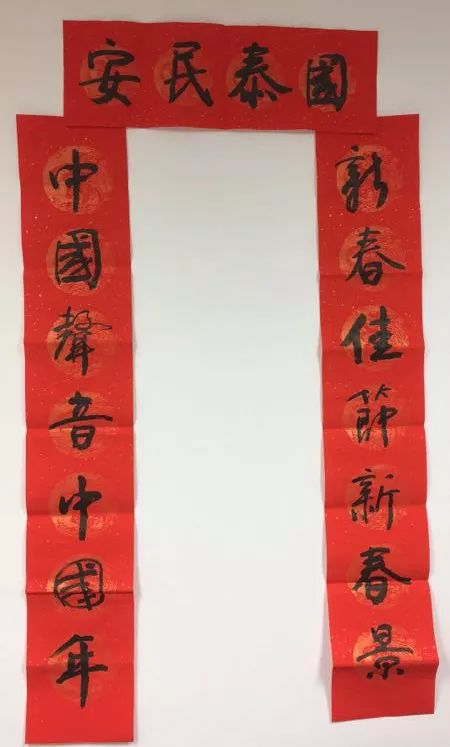 國泰民安
新春佳節新春景
中國聲音中國年